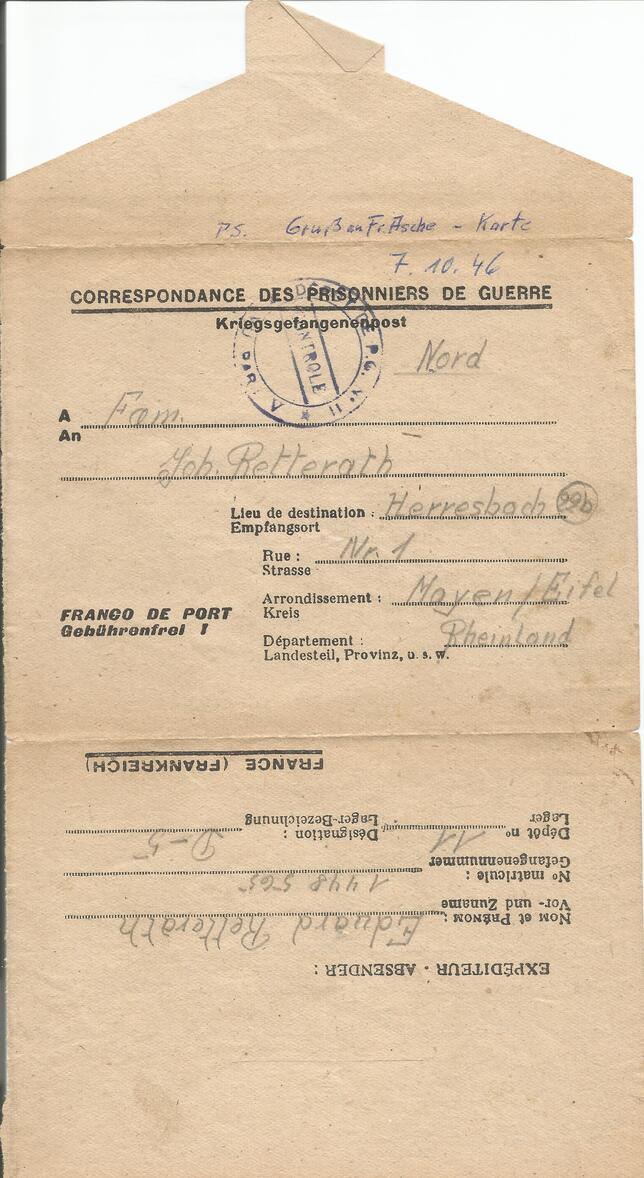 PS. Gruß an Fr. Asche - Karte
7.10.46
CORRESPONDANCE DES PRISONNIERS DE GUERRE
Kriegsgefangenenpost
DÉPÔT DE P.G. N° 11
CONTROLE
Nord
A Fam.
An
Joh. Retterath
Lieu de destination : Herresbach 22b
Empfangsort
Rue : Nr. 1
Strasse
Arrondissement : Mayen/Eifel
Kreis
FRANCO DE PORT
Gebührenfrei !
Département : Rheinland
Landesteil, Provinz, u. s. w.
EXPÉDITEUR - ABSENDER :
NOM et PRÉNOM : Eduard Retterath
Vor- und Zuname
N° matricule : 1448565
Gefangenennummer
Dépôt n° 11 Désignation : D-5
Lager Lager-Bezeichnung
FRANCE (FRANKREICH)